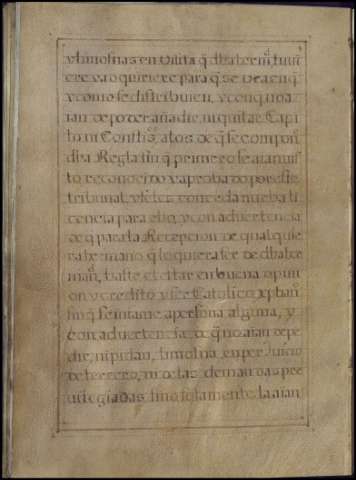 y limosnas en Visita q̃ dha herm.d tuvi
ere cada o quiere para q̃ se vea en q̃
y como se distribuien, y con q̃ no a
ian de poder añadir, ni quitar Capi
tulo ni Constis, atos de q̃ se compon
dha Regla sin q̃ primero se aia vis
to reconocido y aprobado por este
tribunal, y se les conceda nueba li
cencia para ello, y con advertencia
de q̃ para la Recepcion de qualquie
ra hermano q̃ lo quiera ser de dha her
man.d, baste el estar en buena opini
on y credito y ser Catolico xptian
sin q̃ se infame a persona alguna, y
con advertencia de q̃ no aian de pe
dir, ni pidan, limosna, en per Juicio
de tercero, ni de las demandas pre
uilegiadas sino solamente la aian